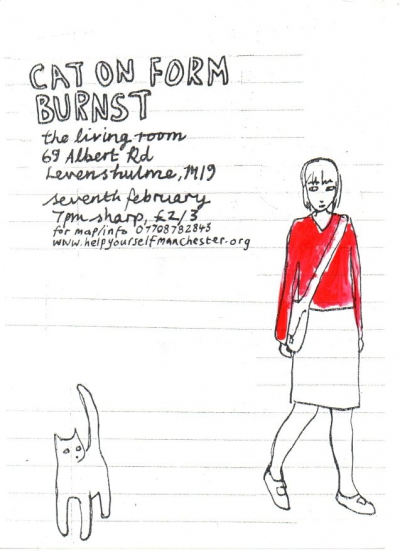 CAT ON FORM
BURNST
the living room
69 Albert Rd
Levenshulme, M19
seventh february
7pm sharp, £2/3
for map/info 07708782845
www.helpyourselfmanchester.org